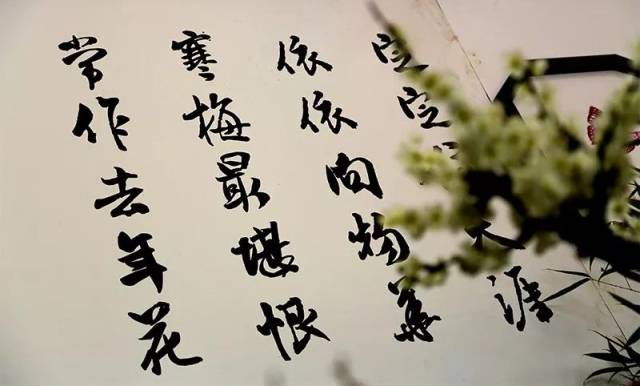 定定天涯
依依向物華
寒梅最堪恨
常作去年花